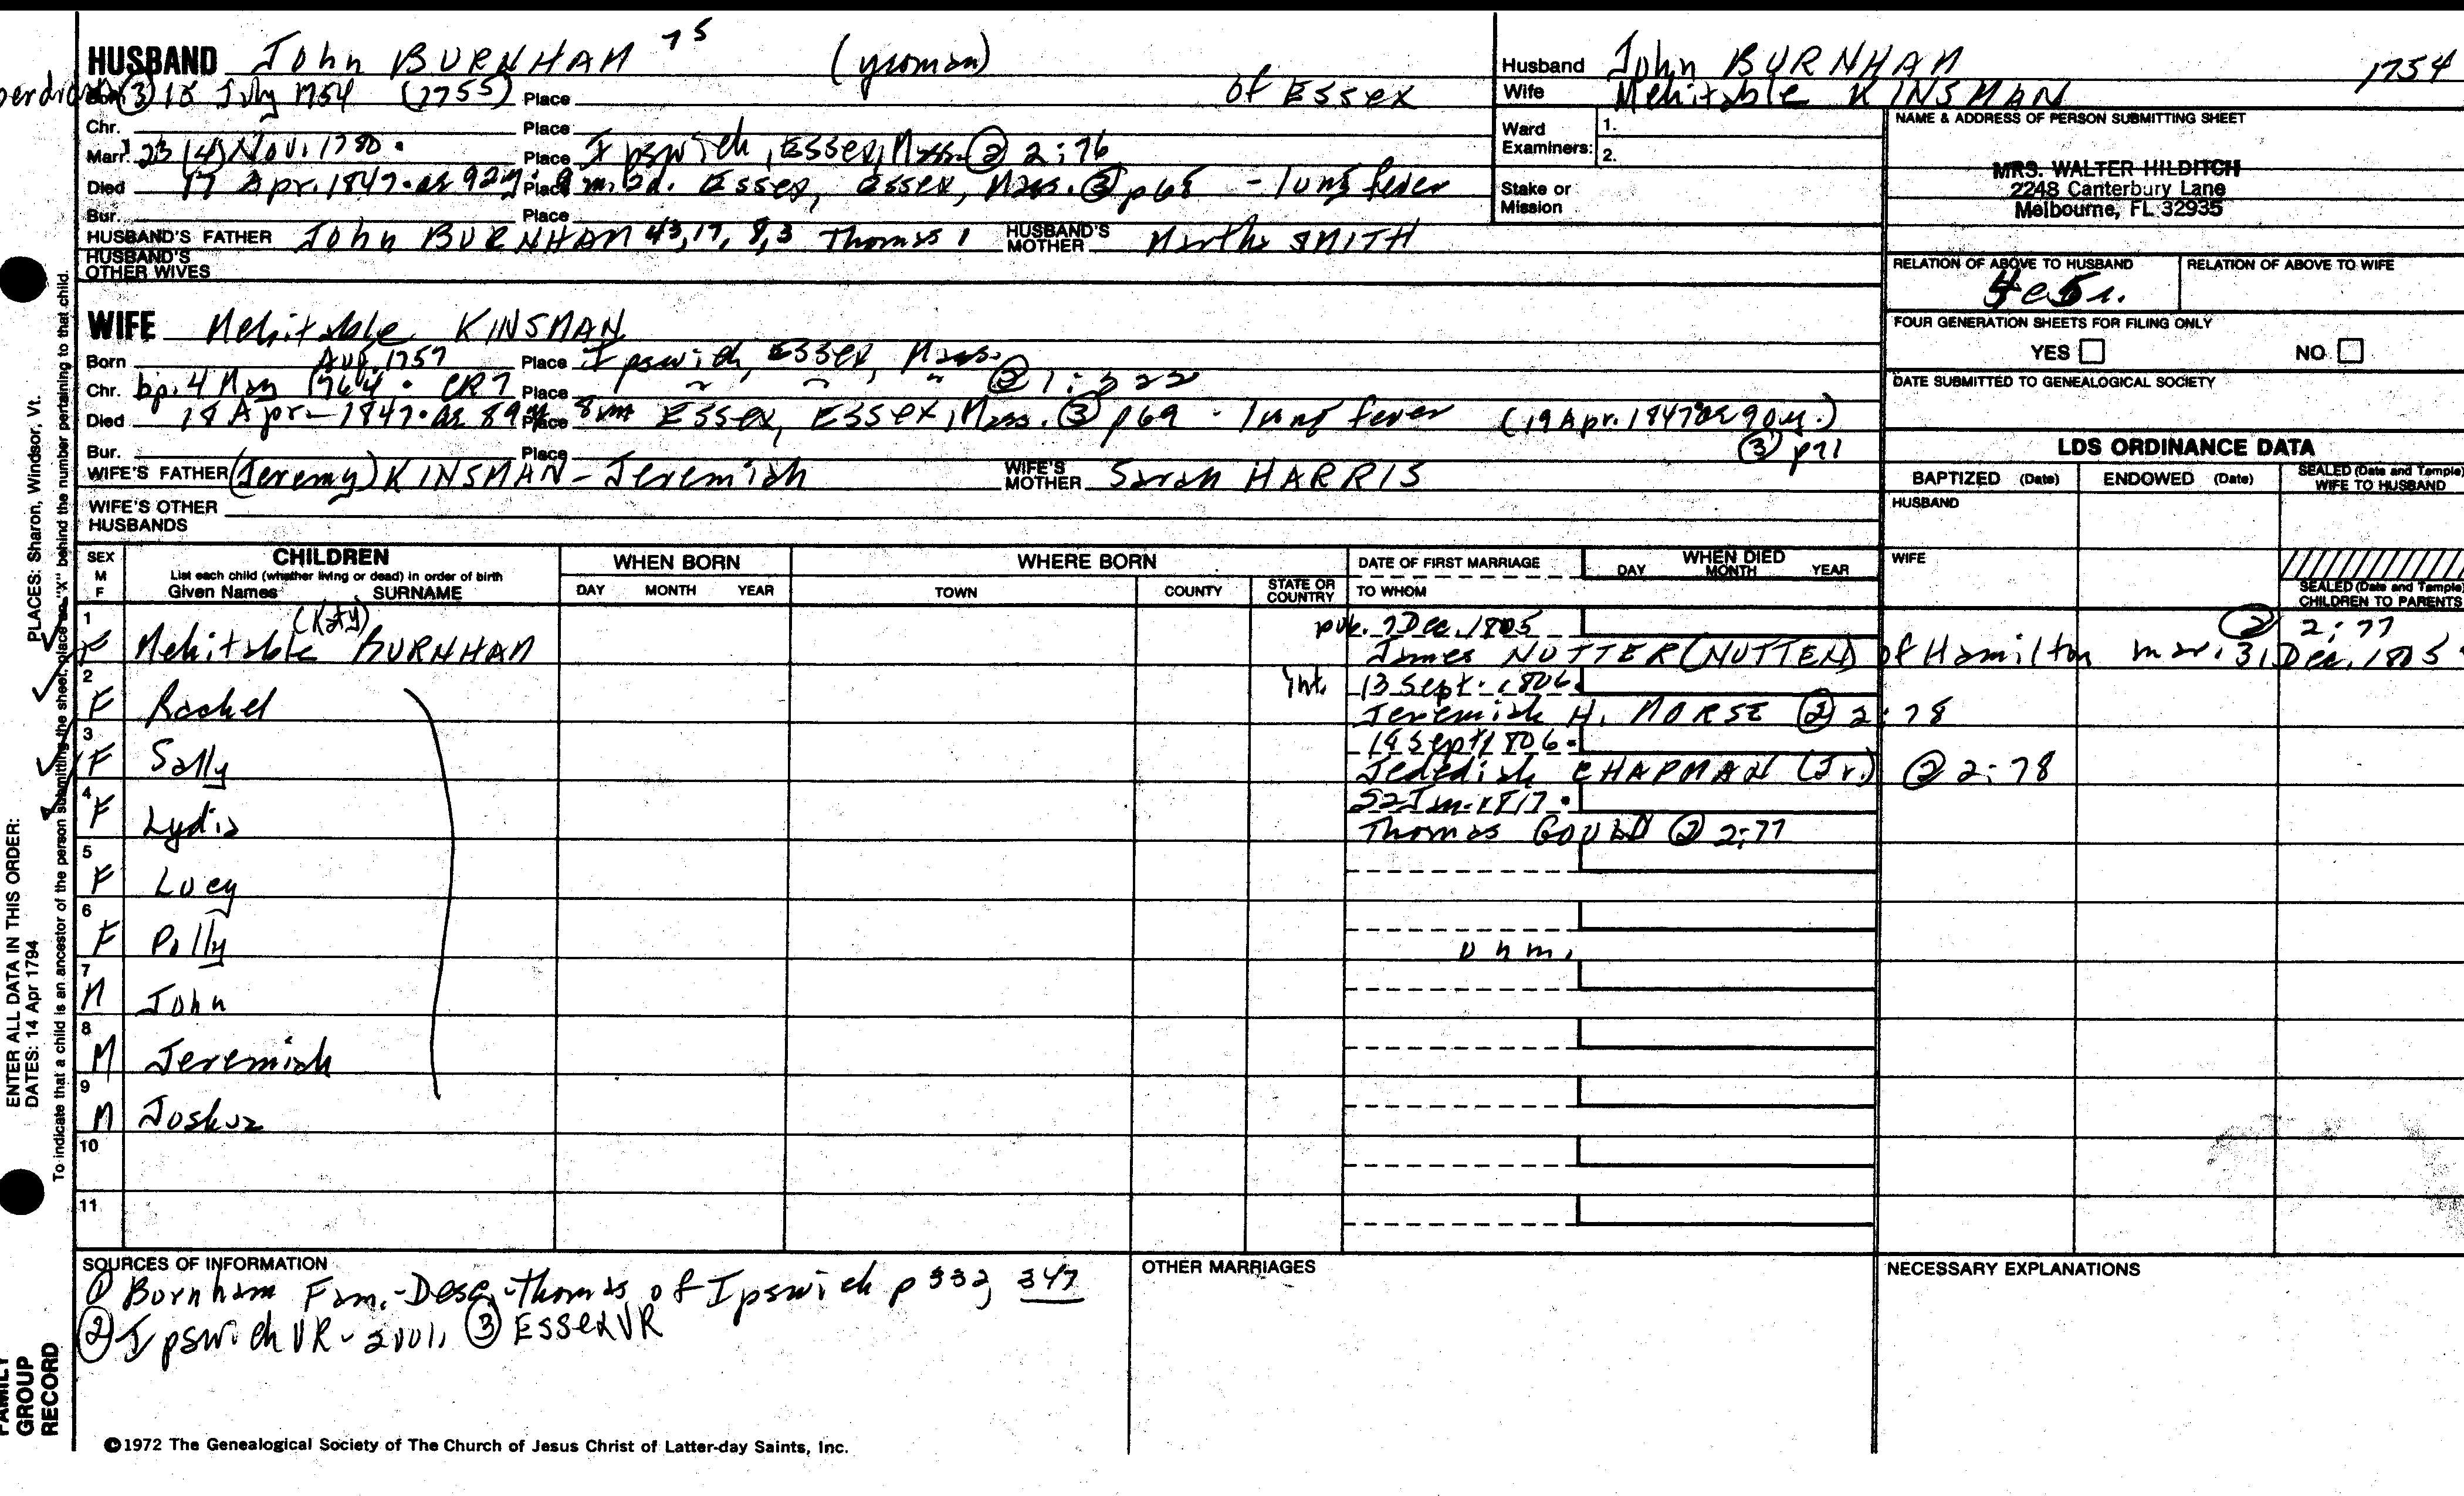 HUSBAND John BURNHAM 75 (yeoman)
Born (3) 15 July 1754 (1755) Place of Essex
Chr. Place
Marr. 23 (4) Nov. 1780. Place Ipswich, Essex, Mass. (2) 2:76
Died 17 Apr. 1847. ae 92 y. 9 m. 2d. Place Essex, Essex, Mass. (3) p68 - lung fever
Bur. Place
HUSBAND'S FATHER John BURNHAM 43, 17, 8, 3 Thomas 1 HUSBAND'S MOTHER Martha SMITH
HUSBAND'S OTHER WIVES
Husband John BURNHAM 1754
Wife Mehitable KINSMAN
Ward Examiners: 1. 2.
Stake or Mission
NAME & ADDRESS OF PERSON SUBMITTING SHEET
MRS. WALTER HILDITCH
2248 Canterbury Lane
Melbourne, FL 32935
RELATION OF ABOVE TO HUSBAND RELATION OF ABOVE TO WIFE
FOUR GENERATION SHEETS FOR FILING ONLY
YES NO
DATE SUBMITTED TO GENEALOGICAL SOCIETY
WIFE Mehitable KINSMAN
Born Aug. 1757 Place Ipswich, Essex, Mass.
Chr. bp. 4 May 1764. CR7 Place " " " (2) 1:222
Died 18 Apr - 1847. ae 89 y 8 m Place Essex, Essex, Mass. (3) p69 - lung fever (19 Apr. 1847 ae 90 y.)
(3) p71
Bur. Place
WIFE'S FATHER (Jeremy) KINSMAN - Jeremiah WIFE'S MOTHER Sarah HARRIS
WIFE'S OTHER HUSBANDS
LDS ORDINANCE DATA
BAPTIZED (Date) ENDOWED (Date) SEALED (Date and Temple) WIFE TO HUSBAND
HUSBAND
WIFE
SEALED (Date and Temple) CHILDREN TO PARENTS
SEX M F CHILDREN
List each child (whether living or dead) in order of birth
Given Names SURNAME
WHEN BORN DAY MONTH YEAR
WHERE BORN TOWN COUNTY STATE OR COUNTRY
DATE OF FIRST MARRIAGE TO WHOM
WHEN DIED DAY MONTH YEAR
1 pub. 7 Dec. 1805 (2) 2:77
F Mehitable (Katy) BURNHAM James NUTTER (NUTTEN) of Hamilton mar. 31 Dec. 1805
2 Int. 13 Sept. 1806.
F Rachel Jeremiah H. MORSE (2) 2:78
3 14 Sept 1806.
F Sally Jedediah CHAPMAN (Jr.) (2) 2:78
4 22 Jan. 1817.
F Lydia Thomas GOULD (2) 2:77
5
F Lucy
6
F Polly unm.
7
M John
8
M Jeremiah
9
M Joshua
10
11
SOURCES OF INFORMATION
(1) Burnham Fam. - Desc. - Thomas of Ipswich p 332, 347
(2) Ipswich VR - 2 vol. (3) Essex VR
OTHER MARRIAGES
NECESSARY EXPLANATIONS
©1972 The Genealogical Society of The Church of Jesus Christ of Latter-day Saints, Inc.
ENTER ALL DATA IN THIS ORDER:
DATES: 14 Apr 1794 PLACES: Sharon, Windsor, Vt.
To indicate that a child is an ancestor of the person submitting the sheet, place an "X" behind the number pertaining to that child.
FAMILY
GROUP
RECORD